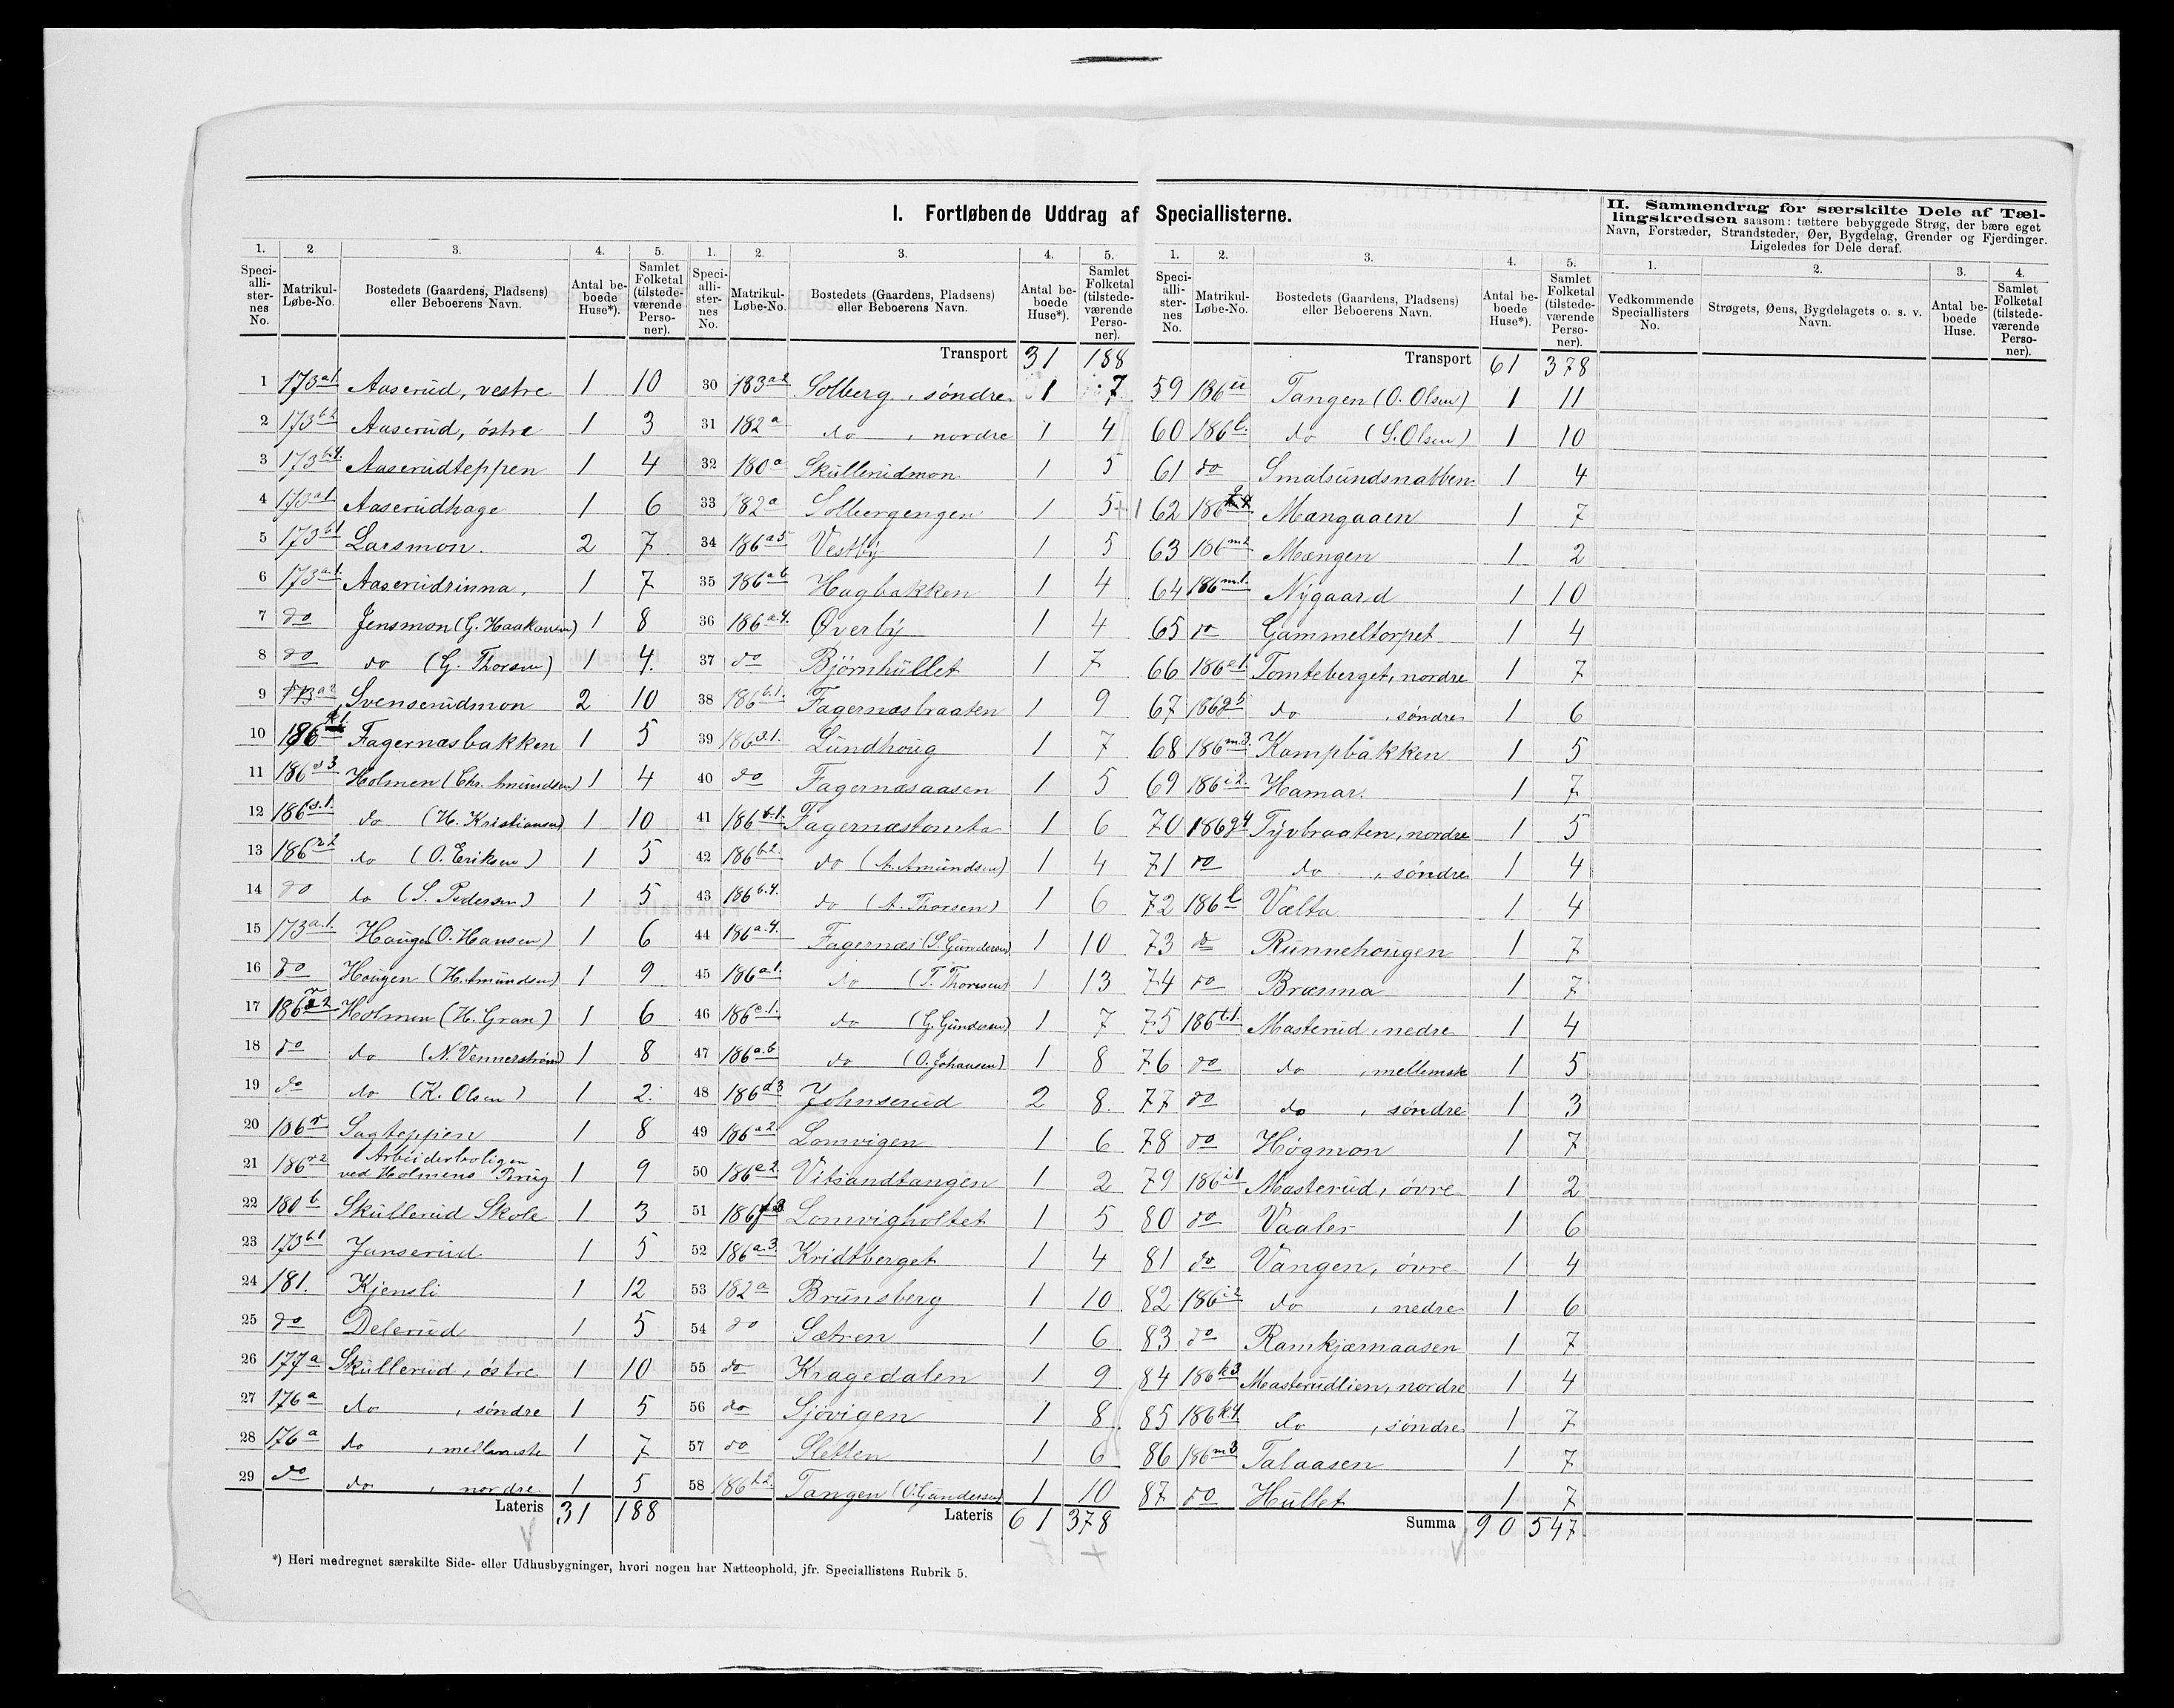 I. Fortløbende Uddrag af Speciallisterne.
1. 2 3. 4. 5.
Speci-alli-ster-nes No. Matrikul-Løbe-No. Bostedets (Gaardens, Pladsens) eller Beboerens Navn. Antal be-boede Huse*). Samlet Folketal (tilstede-værende Perso-ner).
1 173a1 Aaserud, vestre 1 10
2 173b2 Aaserud, østre 1 3
3 173b4. Aaserudteppen 1 4
4 173a1 Aaserudhage 1 6
5 173b1 Larsmon. 2 7
6 173a.1. Aaserudrinna, 1 7
7 do Jensmon (G. Haakonsen) 1 8
8 do do (G. Thorsen) 1 4.
9 173a2 Svenserudmon 2 10
10 186k1. Fagernæsbakken 1 5
11 186s3. Holmen (Chr. Amundsen) 1 4
12 186s.1. do (H. Kristiansen) 1 10
13 186r2 do (O. Eriksen) 1 5
14 do do (S. Pedersen) 1 5
15 173a.1. Haugen (O. Hansen) 1 6
16 do Haugen (H. Amundsen) 1 9
17 186r2 Holmen (H. Gran) 1 6
18 do do (N. Vennerstrøm) 1 8
19 do do (K. Olsen) 1 2.
20 186r Sagteppen 1 8
21 186r2 Arbeiderboligen ved Holmens Brug 1 9
22 180b Skullerud Skole 1 3
23 173b1 Janserud 1 5
24 181. Kjensli 1 12
25 do Delerud 1 5
26 177a Skullerud, østre 1 10
27 176a do , søndre 1 5
28 176a do , mellemste 1 7
29 do do , nordre 1 5
Lateris 31 188
*) Heri medregnet særskilte Side- eller Udhusbygninger, hvori nogen har Natteophold, jfr. Speciallistens Rubrik 5.
1. 2. 3. 4. 5.
Speci-alli-ster-nes No. Matrikul-Løbe-No. Bostedets (Gaardens, Pladsens) eller Beboerens Navn. Antal be-boede Huse*). Samlet Folketal (tilstede-værende Perso-ner).
Transport 31 188
30 183a2 Solberg, søndre 1 7
31 182a do , nordre 1 4
32 180a Skullerudmon 1 5
33 182a Solbergengen 1 5+1
34 186a5 Vestby 1 5
35 186a6 Hagbakken 1 4
36 186a4. Øverby 1 4
37 do Bjørnhullet 1 7
38 186b.1. Fagernæsbraaten 1 9
39 186a.1. Lundhoug 1 7
40 do Fagernæsaasen 1 5
41 186b.1. Fagernæstomta 1 6
42 186b2. do (A. Amundsen) 1 4
43 186b.4. do (A. Thorsen) 1 6
44 186a.4. Fagernæs (S. Gundersen) 1 10
45 186a.1. do (T. Thoresen) 1 13
46 186c.1. do (G. Gundersen) 1 7
47 186a.6 do (O. Johansen) 1 8
48 186d3 Johnserud 2 8.
49 186a2. Lomvigen 1 6
50 186e2. Vitsandtangen 1 2
51 186 Lomvigholtet 1 5
52 186a.3. Kridtberget 1 4
53 182a Brunsberg 1 10
54 do Sætren 1 6
55 do Kragedalen 1 9
56 do Sjøvigen 1 8
57 do Sletten 1 6
58 186h2. Tangen (O. Gundersen) 1 10
Lateris 61 378
1. 2. 3. 4. 5.
Speci-alli-ster-nes No. Matrikul-Løbe-No. Bostedets (Gaardens, Pladsens) eller Beboerens Navn. Antal be-boede Huse*). Samlet Folketal (tilstede-værende Perso-ner).
Transport 61 378
59 186u Tangen (O. Olsen) 1 11
60 186l. do (S. Olsen) 1 10
61 do Smalsundsnabben 1 4
62 186 Mangaaen 1 7
63 186m2 Mangen 1 2
64 186m.1. Nygaard 1 10
65 do Gammeltorpet 1 4
66 186e1. Tomteberget, nordre 1 7
67 186g5 do , søndre 1 6
68 186m.3. Kampbakken 1 5
69 186i2. Hamar. 1 7
70 186g4 Tyvbraaten, nordre 1 5
71 do do , søndre 1 4
72 186l Vælta 1 4
73 do Runnehougen 1 7
74 do Brænna 1 7
75 186t.1. Masterud, nedre 1 4
76 do do , mellemste 1 5
77 do do , søndre 1 3
78 do Høgmon 1 7
79 186i1 Masterud, øvre 1 2
80 do Vaaler 1 6
81 do Vangen, øvre 1 4
82 186i2 do , nedre 1 6
83 do Ramkjærnaasen 1 7
84 186k3 Masterudlien, nordre 1 4
85 186k.4. do , søndre 1 7
86 186m3 Talaasen 1 7
87 do Hullet 1 7
Summa 90 547
II. Sammendrag for særskilte Dele af Tæl-
lingskredsen saasom: tættere bebyggede Strøg, der bære eget
Navn, Forstæder, Strandsteder, Øer, Bygdelag, Grender og Fjerdinger.
Ligeledes for Dele deraf.
1. 2. 3. 4.
Vedkommende Speciallisters No. Strøgets, Øens, Bygdelagets o. s. v. Navn. Antal be-boede Huse. Samlet Folketal (tilstede-værende Perso-ner).